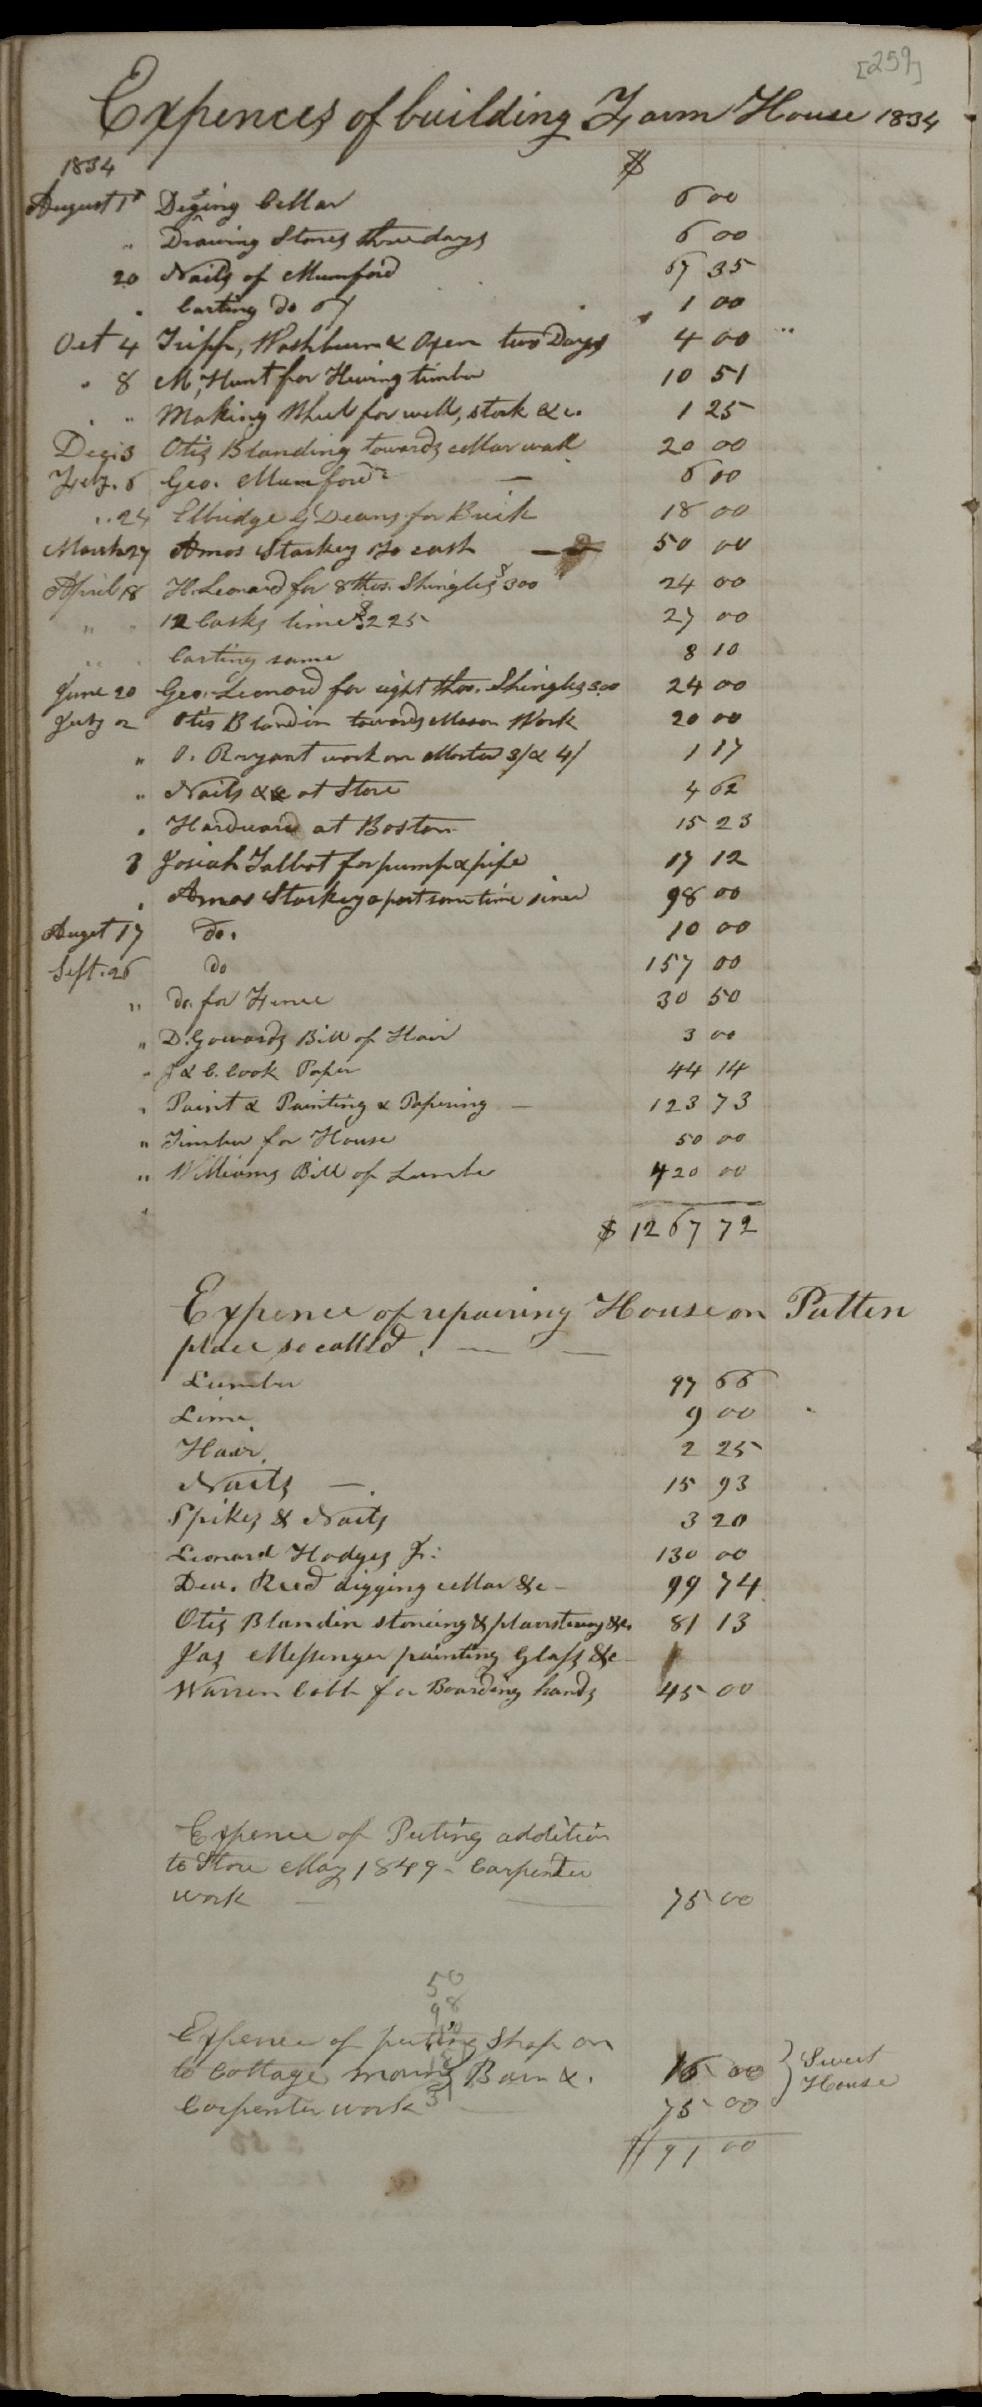 [259]
Expences of building Farm House 1834
1834 $
August 1st Diging Cellar 6 00
" Drawing Stones three days 6 00
20 Nails of Mumford 67 35
" Carting do 67 1 00
Oct 4 Tripp, Washburn & Oxen two Days 4 00
" 8 M, Hunt for Hewing timber 10 51
" " Making Wheel for well, stock &c. 1 25
Dec. 3 Otis Blanding towards cellar wall 20 00
Feby. 6 Geo. Mumford — 6 00
" 24 Elbridge G Deans for Brick 18 00
March 27 Amos Starkey cash — 50 00
April 18 H. Leonard for 8 thos. Shingles $300 24 00
" " 12 Casks lime $225 27 00
" " Carting same 8 10
June 20 Geo. Leonard for eight thos. Shingles 3.00 24 00
July 2 Otis Blandin towards Mason Work 20 00
" O. Bryant work on Morter 3/ & 4/ 1 17
" Nails &c at Store 4 62
" Hardware at Boston 15 23
3 Josiah Talbot for pump & pipe 17 12
" Amos Starkey a part some time since 98 00
Augst 17 do. 10 00
Sept. 26 do 157 00
" do. for Fence 30 50
" D. Gowards Bill of Hair 3 00
" J & C. Cook Paper 44 14
" Paint & Painting & Papering — 123 73
" Timber for House 50 00
" Williams Bill of Lumber 420 00
$ 1267 72
Expence of repairing House on Patten
place so called. — —
Lumber 97 66
Lime 9 00
Hair. 2 25
Nails —. 15 93
Spikes & Nails 3 20
Leonard Hodges Jr: 130 00
Dea. Reed digging cellar &c — 99 74
Otis Blandin stoneing & plaurstering &c. 81 13
Jas Messenger painting Glass &c —
Warren Cobb for Boarding hands 45 00
Expence of Puting addition
to Store May 1849 - Carpenter
work — — 75 00
50
98
Expence of puting Shop on
to Cottage moving Barn &. 16 00 } Swest
Carpenter work — 75 00 } House
$ 91 00